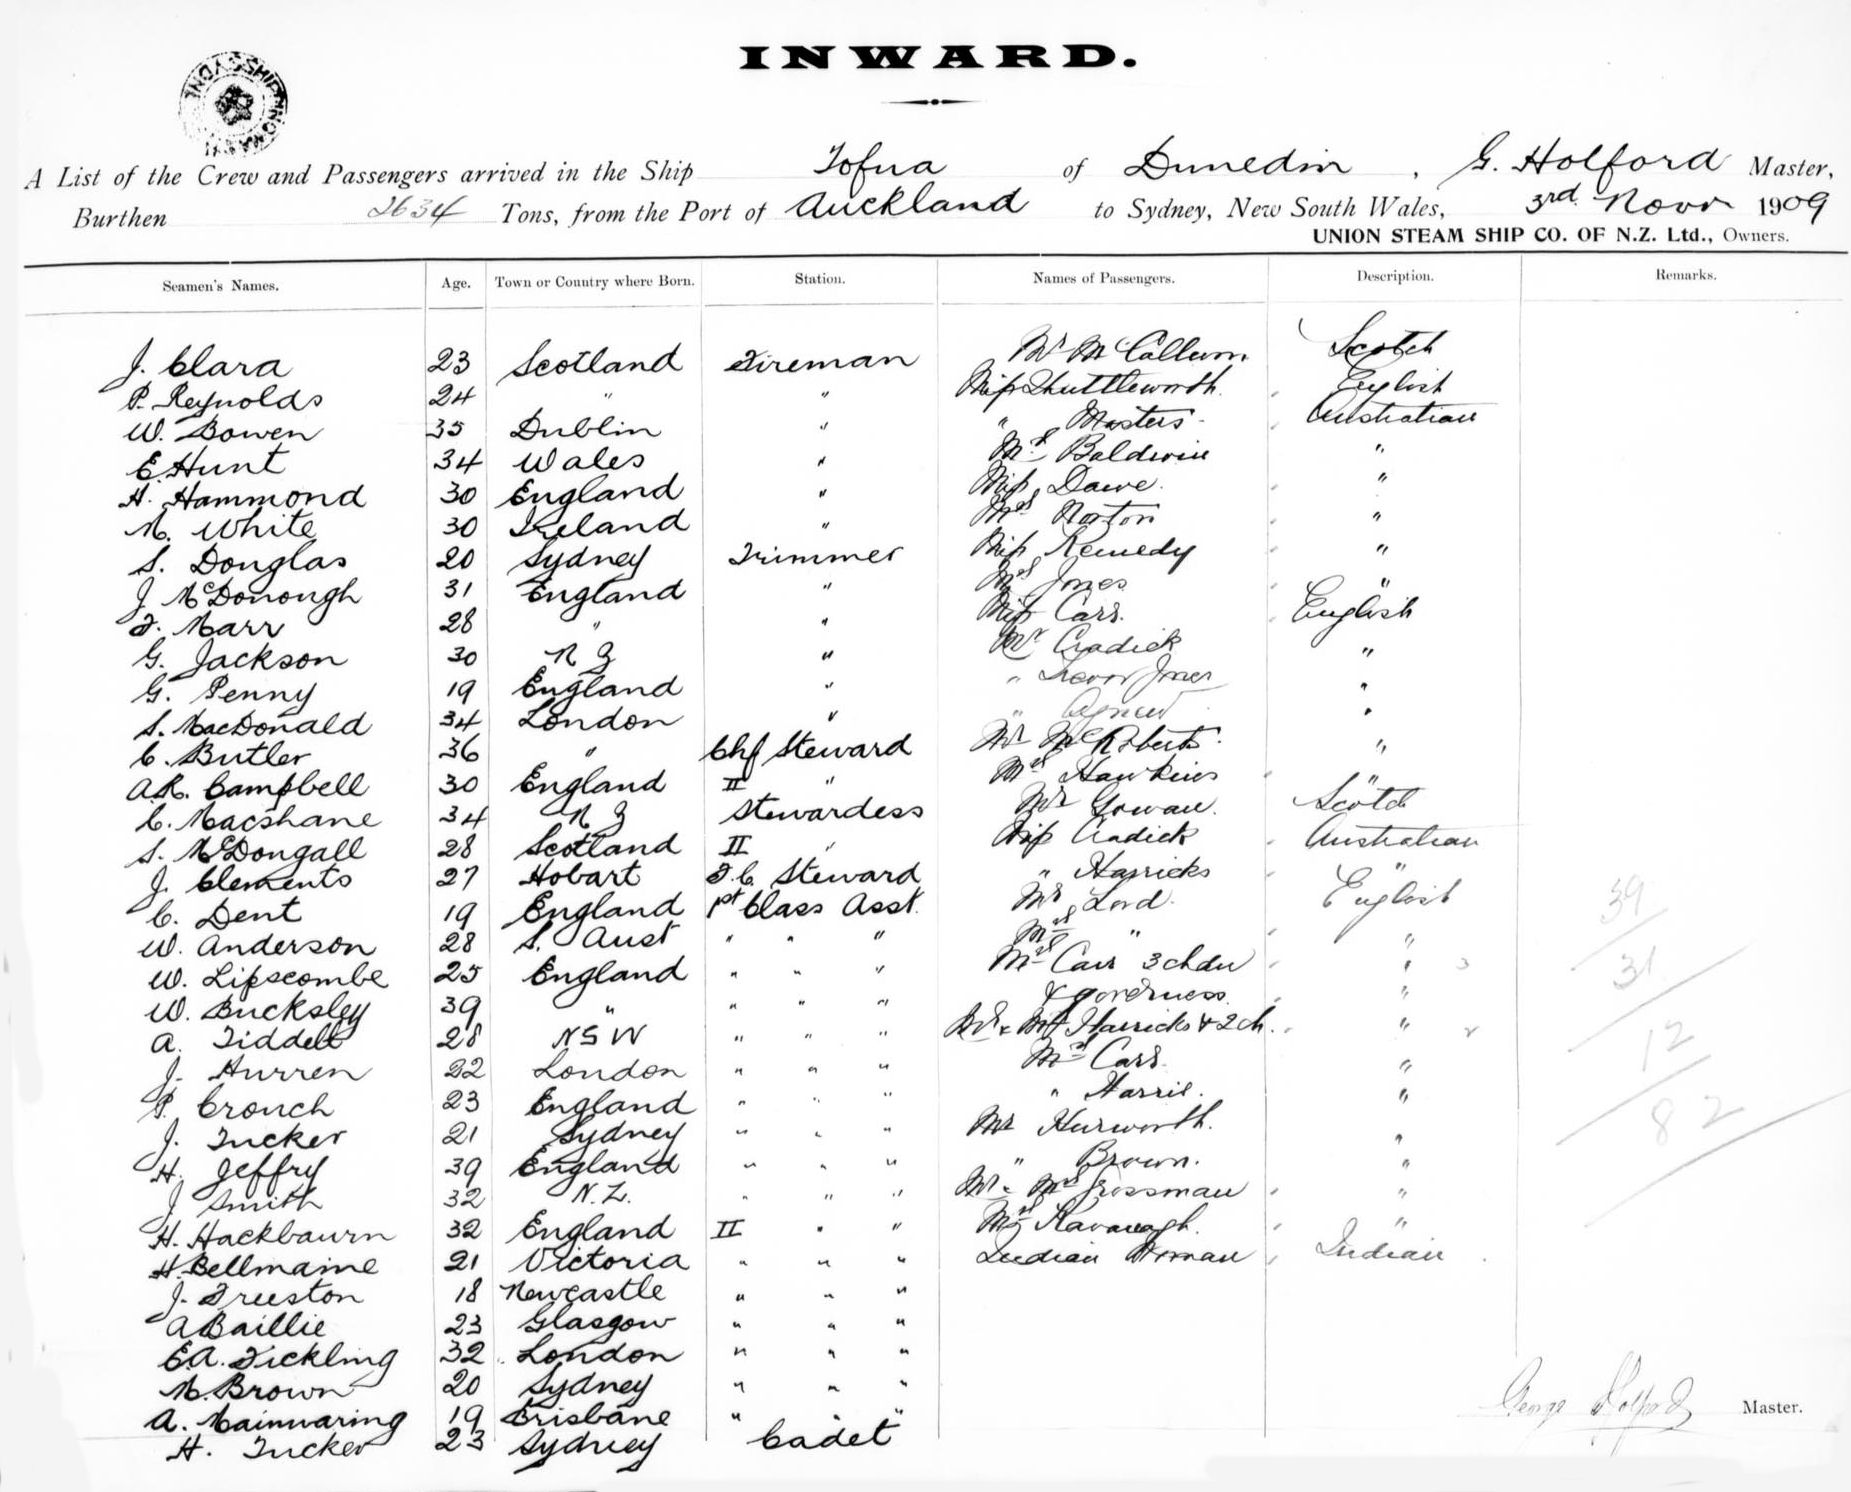 INWARD.
A List of the Crew and Passengers arrived in the Ship Tofua of Dunedin, G. Holford Master,
Burthen 2634 Tons, from the Port of Auckland to Sydney, New South Wales, 3rd Novr 1909
UNION STEAM SHIP CO. OF N.Z. Ltd., Owners.
Seamen's Names. Age. Town or Country where Born. Station. Names of Passengers. Description. Remarks.
J. Clara 23 Scotland Fireman Mr McCallum Scotch
P. Reynolds 24 " " Miss Shuttleworth English
W. Bowen 35 Dublin " " Masters Australian
E. Hunt 34 Wales " Mrs Baldwin "
H. Hammond 30 England " Miss Dawe "
M. White 30 Ireland " Mrs Norton "
S. Douglas 20 Sydney Trimmer Miss Kennedy "
J McDonough 31 England " Mrs Jones "
F. Marr 28 " " Miss Carr. English
G. Jackson 30 N Z " Mr Cradick "
G. Penny 19 England " " Trevor Jones "
S. MacDonald 34 London " " Agnew "
C. Butler 36 " Chf Steward Mr McRoberts "
A.R. Campbell 30 England II " Mrs Hawkins "
C. Macshane 34 N Z Stewardess Mr Gowan. Scotch
S. McDongall 28 Scotland II " Miss Cradick Australian
J. Clements 27 Hobart F.C. Steward " Harricks "
C. Dent 19 England 1st Class Asst. Mr Lord English
W. Anderson 28 S. Aust " " " Mrs " "
W. Lipscombe 25 England " " " Mrs Carr 3 chdn " 3
W. Bucksley 39 " " " " & governess "
A. Tiddell 28 NSW " " " Mr & Mrs Harricks & 2 ch. " 2
J. Hurren 22 London " " " Mrs Carr "
P. Crouch 23 England " " " " Harris. "
J. Tucker 21 Sydney " " " Mr Hurworth. "
H. Jeffry 39 England " " " " Brown. "
J Smith 32 N.Z. " " " Mr & Mrs Grossman "
H. Hackbaurn 32 England II " " Mrs Kavanagh. "
H. Bellmaine 21 Victoria " " " Indian Woman Indian
J. Freeston 18 Newcastle " " "
A Baillie 23 Glasgow " " "
E.A. Tickling 32 London " " "
M. Brown 20 Sydney " " "
A. Mainwaring 19 Brisbane " " "
H. Tucker 23 Sydney Cadet
39
31
12
82
George Holford Master.